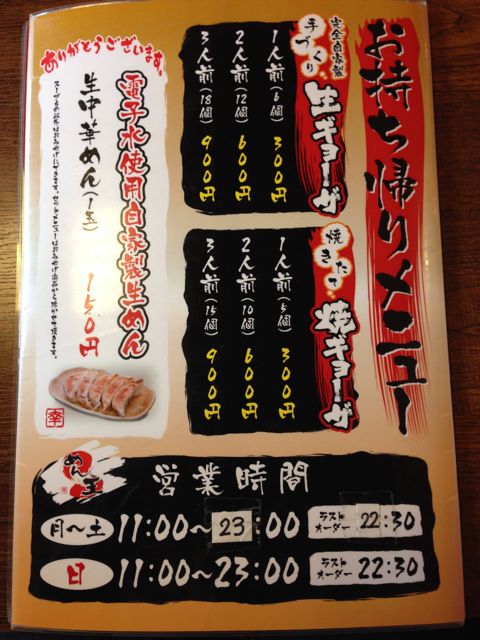 お持ち帰りメニュー
完全自家製
手づくり
生ギョーザ
1人前(6個) 300円
2人前(12個) 600円
3人前(18個) 900円
焼きたて
焼ギョーザ
1人前(5個) 300円
2人前(10個) 600円
3人前(15個) 900円
ありがとうございます。
電子水使用自家製生めん
生中華めん(1玉) 150円
幸
めん王
営業時間
月～土 11:00～23:00 ラストオーダー 22:30
日 11:00～23:00 ラストオーダー 22:30